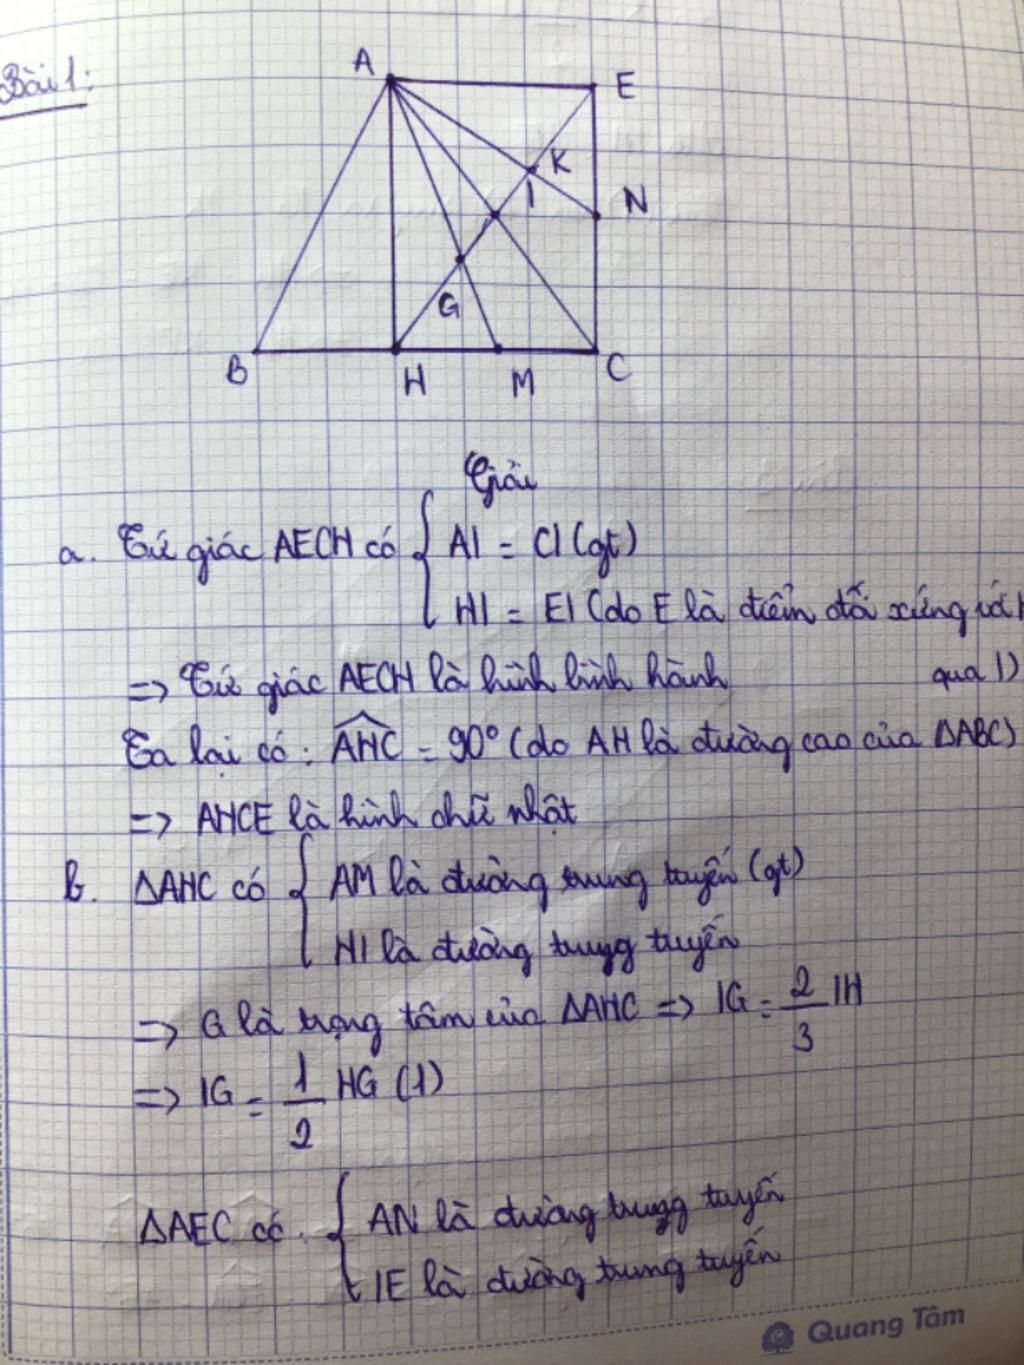 Bài 1:
A
E
K
I
N
G
B
H
M
C
Giải
a. Tứ giác AECH có { AI = CI (gt)
HI = EI (do E là điểm đối xứng với H
qua I)
=> Tứ giác AECH là hình bình hành
Ta lại có: AHC = 90° (do AH là đường cao của ΔABC)
=> AHCE là hình chữ nhật
b. ΔAHC có { AM là đường trung tuyến (gt)
HI là đường trung tuyến
=> G là trọng tâm của ΔAHC => IG = 2/3 IH
=> IG = 1/2 HG (1)
ΔAEC có: { AN là đường trung tuyến
IE là đường trung tuyến
Quang Tâm